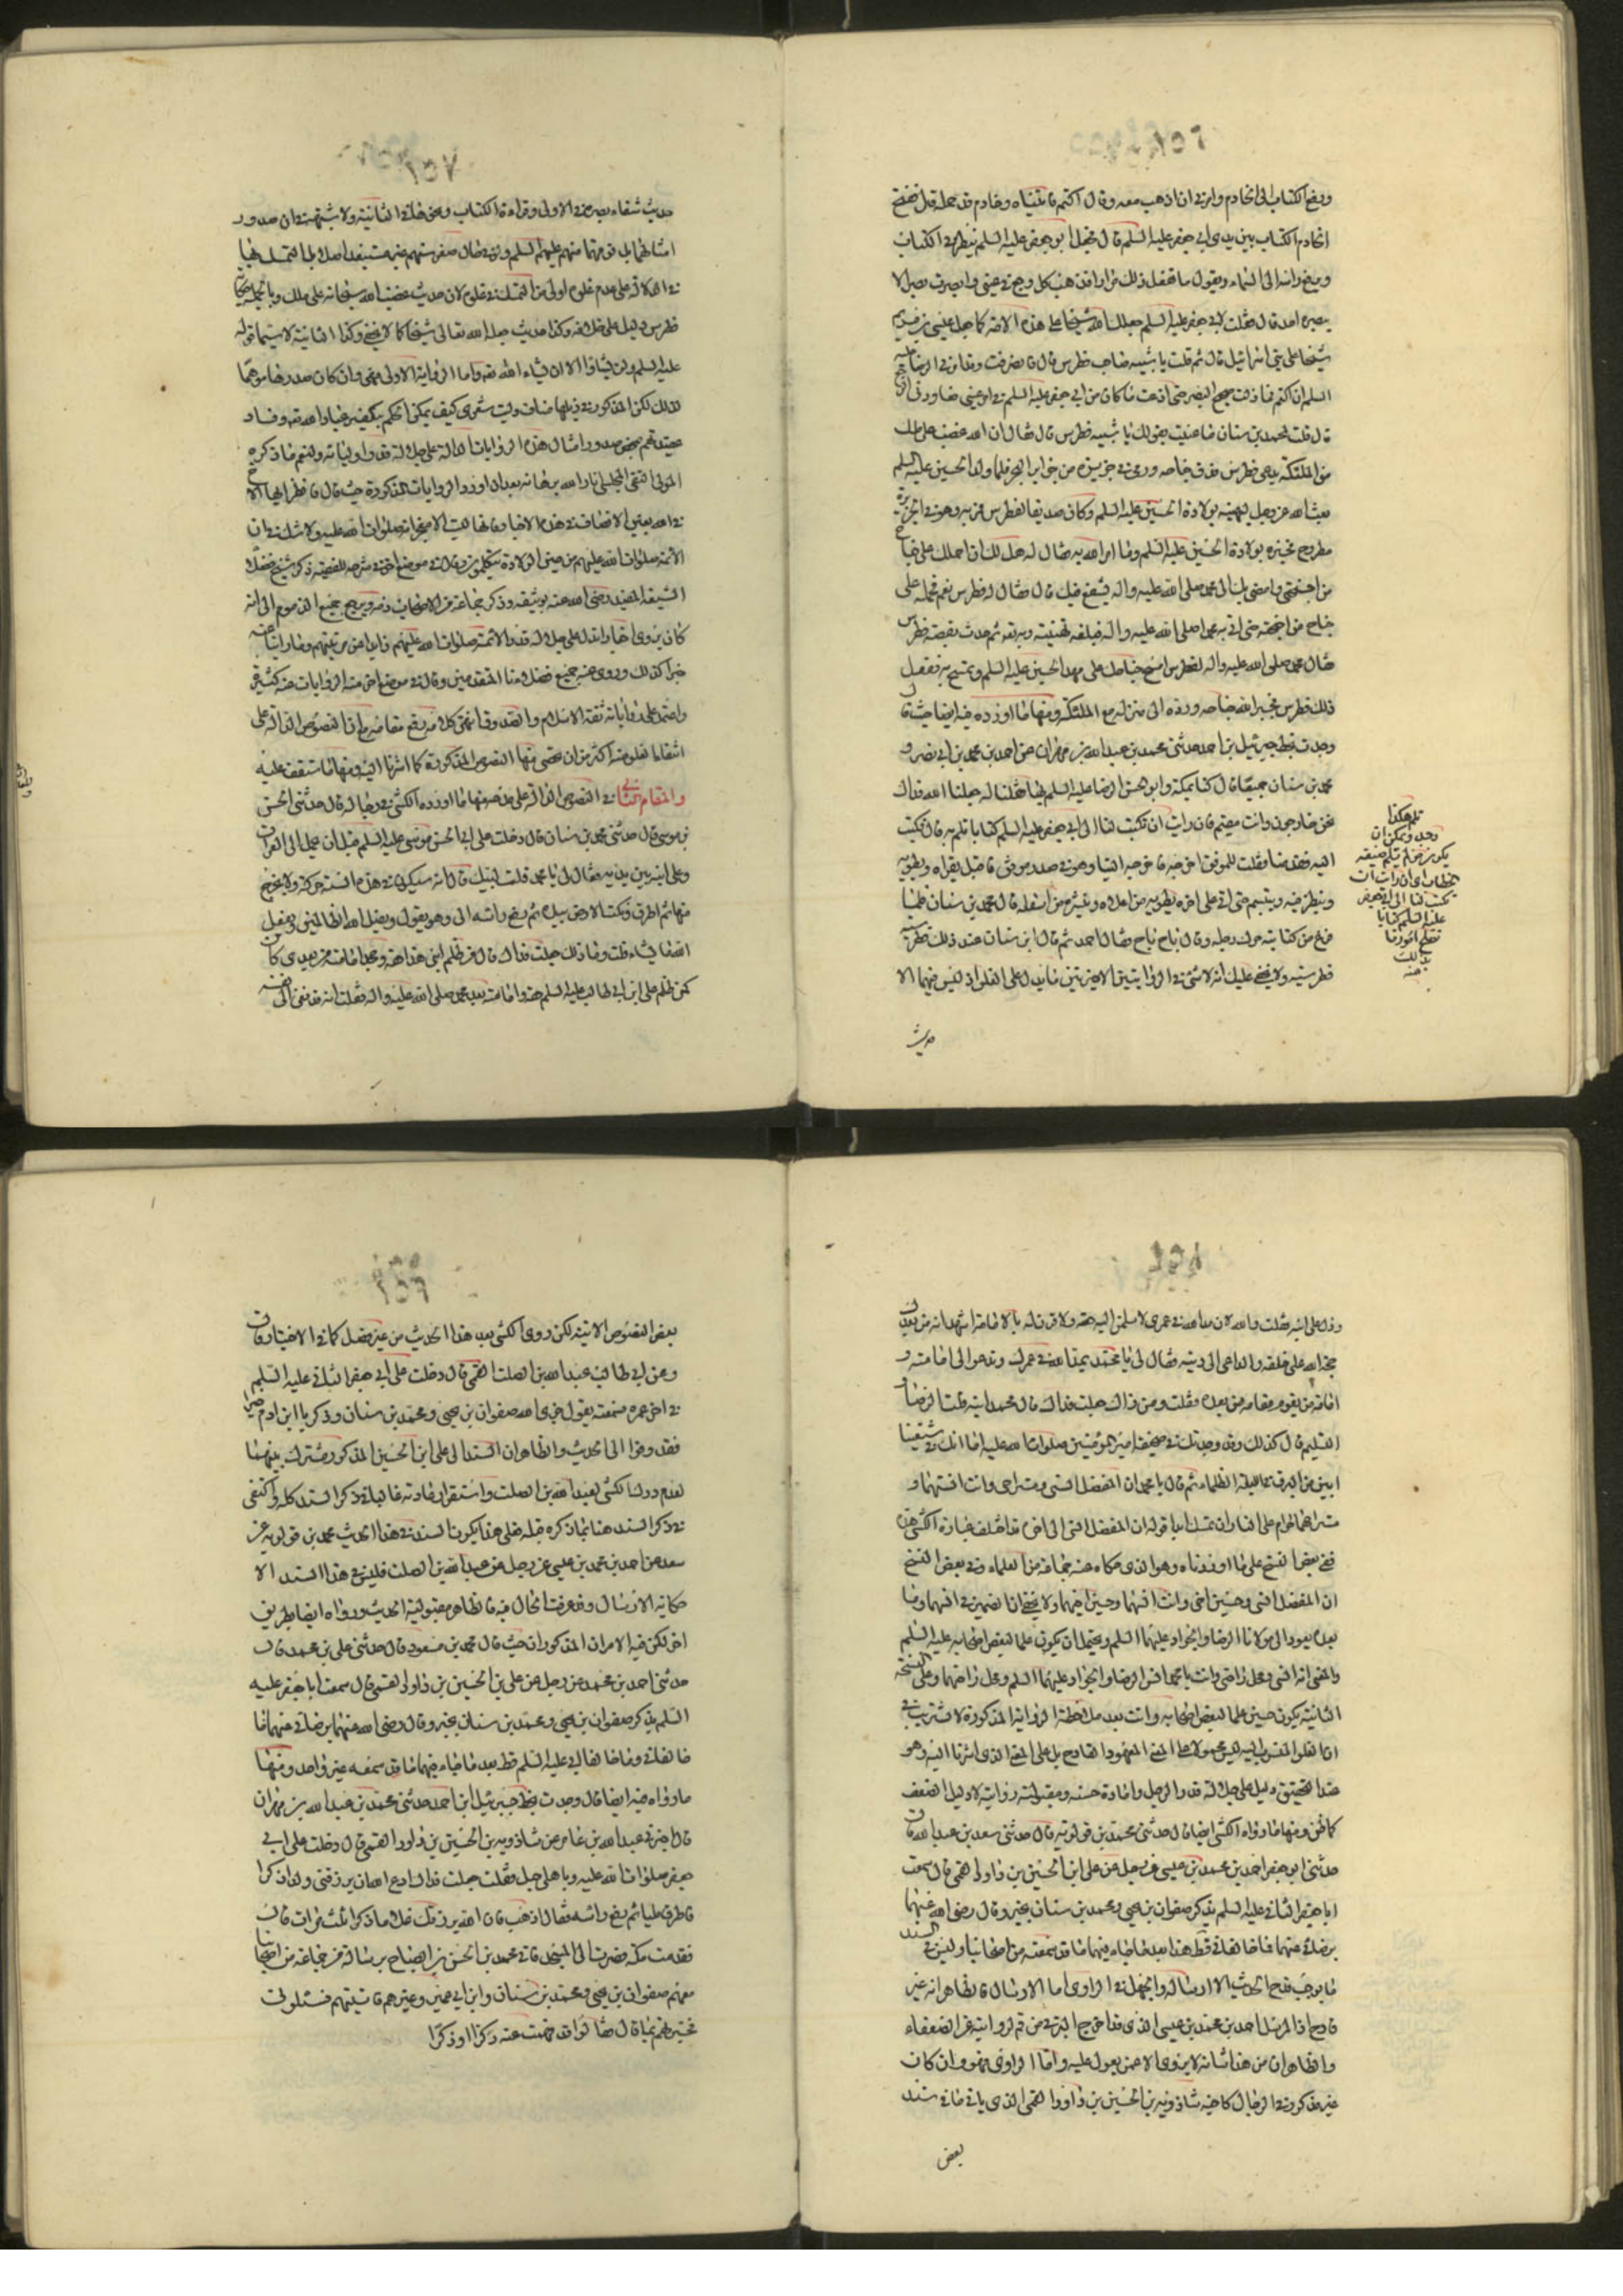 ودفع الكتاب الى الخادم وامرنى ان اذهب معه وقال اكتم فاتيناه وخادم قد حمله قال ففتح
الخادم الكتاب بين يدى ابى جعفر عليه السلم قال فجعل ابو جعفر عليه السلم ينظر فى الكتاب
ويرفع راسه الى السماء ويقول ناج ففعل ذلك مرارا فذهب كل وجع فى عينى وابصرت بصرا لا
يبصره احد قال فقلت لابى جعفر عليه السلم جعلك الله شيخا على هذه الامة كما جعل عيسى بن مريم
شيخا على بنى اسرائيل قال ثم قلت يا شبيه صاحب فطرس قال فانصرفت وقد امرنى الرضا عليه
السلم ان اكتم فما زلت صحيح البصر حتى اذعت ما كان من ابى جعفر عليه السلم فى امر عينى فعاودنى الوجع
قال قلت لمحمد بن سنان ما عنيت بقولك يا شبيه فطرس قال فقال ان الله غضب على ملك
من الملئكة يدعى فطرس فدق جناحه ورمى فى جزيرة من جزاير البحر فلما ولد الحسين عليه السلم
بعث الله عز وجل ليهنيه بولادة الحسين عليه السلم وكان صديقا لفطرس فمر به وهو فى الجزيرة
مطروح فخبره بولادة الحسين عليه السلم وما امر الله به فقال له هل لك ان احملك على جناح
من اجنحتى وامضى بك الى محمد صلى الله عليه واله ليشفع فيك قال فقال له فطرس نعم فحمله على
جناح من اجنحته حتى اتى به محمدا صلى الله عليه واله فبلغه تهنيته ربه تعه ثم حدثه بقصة فطرس
فقال محمد صلى الله عليه واله لفطرس امسح جناحك على مهد الحسين عليه السلم وتمسح به ففعل
ذلك فطرس فجبر الله جناحه ورده الى منزله مع الملئكة ومنها ما اورده فيه ايضا حيث قال
وجدت بخط جبرئيل بن احمد حدثنى محمد بن عبد الله بن مهران عن احمد بن محمد بن ابى نصر و
محمد بن سنان جميعا قال كنا بمكة وابو الحسن الرضا عليه السلم بها فقلنا له جعلنا الله فداك
نحن خارجون وانت مقيم فان رايت ان تكتب لنا الى ابى جعفر عليه السلم كتابا نلم به قال فكتب
اليه فقدمنا فقلت للموفق اخرجه فاخرجه الينا وهو فى صدر موفق فاقبل يقراه ويطويه
وينظر فيه ويتبسم حتى اتى على اخره يطويه من اعلاه وينشره من اسفله قال محمد بن سنان فلما
فرغ من كتابته حرك رجله وقال ناج ناج فقال احمد ثم قال ابن سنان عند ذلك فطرسيه
فطرسيه ولا يخفى عليك انه لا شئ فى الروايتين الاخيرتين مما يدل على الغلو اذ ليس فيهما الا
حديث
نلم هكذا
وجد ويمكن ان
يكون
الخطاب اى ان رايت ان
تكتب لنا الى ابى جعفر
عليه السلم كتابا
امورنا
بذلك
منه
حديث شفاء بصره فى الاولى وقراءة الكتاب فى الثانية ولا شبهة فى ان صدور
امثالهما بل فوقهما منهم عليهم السلم
فى الدلالة على عدم غلوه اولى من التمسك فى غلوه لان حديث غضب الله سبحانه على ملك
فطرس دليل على خلافه وكذا حديث جعل الله تعالى شيخا كما لا يخفى وكذا الثانية لا سيما قوله
عليه السلم ولن يشاؤا الا ان يشاء الله تعه واما الرواية الاولى فهى وان كان صدرها موهما
لذلك لكن المذكور فى ذيلها مناف وليت شعرى كيف يمكن الحكم بتكفير عباد الله تعه وفساد
عقيدتهم بمحض صدور امثال هذه الروايات الدالة على جلالة قدر اوليائه ولنعم ما ذكره
المولى التقى المجلسى انار الله برهانه بعد ان اورد الروايات المذكورة حيث قال فانظر ايها الاخ
فى الله بعين الانصاف فى هذه الاخبار فانها ليست الا معجزاته صلوات الله عليه ولا شك فى ان
الائمة صلوات الله عليهم من حين الولادة يتكلمون وقال فى موضع اخر من شرحه للفقيه ذكر شيخ فضلاء
الشيعة المفيد رضى الله عنه توثيقه وذكر جماعة من الاصحاب ذمه ويرجع جميع الذموم الى انه
كان يروى اخبارا تدل على جلالة قدر الائمة صلوات الله عليهم
خبرا كذلك وروى عنه جميع فضلائنا المتقدمين وقال فى موضع اخر منه الروايات عنه كثيرة
واعتمد على رواياته ثقة الاسلام والصدوق انتهى كلامه رفع مقامه واما النصوص الدالة على
انتفاء الغلو منه اكثر من ان تحصى منها النصوص المذكورة كما اشرنا اليه ومنها ما ستقف عليه
والمقام الثانى فى النصوص الدالة على مدحه فمنها ما اورده الكشى فى رجاله قال حدثنى الحسن
بن موسى قال حدثنى محمد بن سنان قال دخلت على ابى الحسن موسى عليه السلم قبل ان يحمل الى العراق
وعلى ابنه بين يديه فقال لى يا محمد قلت لبيك قال انه سيكون فى هذه السنة حركة ولا تخرج
منها ثم اطرق ونكت الارض بيده ثم رفع راسه الى وهو يقول ويضل الله الظالمين ويفعل
الله ما يشاء قلت وما ذلك جعلت فداك قال من ظلم ابنى هذا حقه وجحد امامته من بعدى كان
كمن ظلم على ابن ابى طالب عليه السلم حقه وامامته بعد محمد صلى الله عليه واله فعلمت انه قد نعى الى نفسه
ودل على ابنه فقلت والله لان مد الله فى عمرى لاسلمن اليه حقه ولاقرن له بالامامة اشهد انه من بعدك
حجة الله على خلقه والداعى الى دينه فقال لى يا محمد يمد الله فى عمرك وتدعو الى امامته و
امامة من يقوم مقامه من بعده فقلت ومن ذاك جعلت فداك قال محمد ابنه قلت الرضا و
التسليم قال كذلك وقد وجدتك فى صحيفة امير المؤمنين صلوات الله عليه اما انك فى شيعتنا
ابين من البرق فى الليلة الظلماء ثم قال يا محمد ان المفضل انسى ومستراحى وانت انسهما و
مستراحهما حرام على النار ان تمسك ابدا قوله ان المفضل انسى الى اخره قد اختلف عبارة الكشى هنا
ففى بعض النسخ على ما اوردناه وهو الذى حكاه عنه جماعة من العلماء وفى بعض النسخ
ان المفضل انسى وحسين اخى وانت انسهما وحسين اخيهما ولا يخفى ان الضمير فى انسهما وما
بعده يعود الى مولانا الرضا والجواد عليهما السلم ويحتمل ان يكون علما لبعض اصحابه عليه السلم
والمعنى انه انسى ومحل راحتى وانت يا محمد انس الرضا والجواد عليهما السلم ومحل راحتهما وعلى النسخة
الثانية يكون حسين علما لبعض اصحابه وانت بعد ملاحظة الرواية المذكورة لا تستريب فى
ان الغلو المنسوب اليه ليس محمولا على المعنى المعهود القادح بل على المعنى الذى اشرنا اليه وهو
عند التحقيق دليل على جلالة قدر الرجل وافادة حسنه ومقبولية رواية لا دليل الضعف
كما ظن ومنها ما رواه الكشى ايضا قال حدثنى محمد بن قولويه قال حدثنى سعد بن عبد الله قال
حدثنى ابو جعفر احمد بن محمد بن عيسى عن رجل عن على ابن الحسين بن داود القمى قال سمعت
ابا جعفر الثانى عليه السلم يذكر صفوان بن يحيى ومحمد بن سنان بخير وقال رضى الله عنهما
برضائى عنهما فما خالفانى قط هذا بعد ما جاء فيهما ما قد سمعته من اصحابنا وليس فى السند
ما يوجب قدح الحديث الا الارسال والجهل فى الراوى اما الارسال فالظاهر انه غير
قادح اذ المرسل احمد بن محمد بن عيسى الذى قد اخرج البرقى من قم لروايته عن الضعفاء
والظاهر ان من هذا شانه لا يروى الا عمن يعول عليه واما الراوى فهو وان كان
غير مذكور فى الرجال كاخيه شاذويه بن الحسين بن داود القمى الذى ياتى فى سند
بعض
بعض النصوص الاتية لكن روى الكشى بعد هذا الحديث من غير فصل كما فى الاختيار قال
وعن ابى طالب عبد الله بن الصلت القمى قال دخلت على ابى جعفر الثانى عليه السلم
فى اخر عمره فسمعته يقول جزى الله صفوان بن يحيى ومحمد بن سنان وذكريا ابن ادم خيرا
فقد وفوا الى الحديث والظاهر ان السند الى على ابن الحسين المذكور مشترك بينهما
لعدم درك الكشى لعبد الله بن الصلت واستقرار عادته غالبا فى ذكر السند كله واكتفى
فى ذكر السند هنا بما ذكره قبله فعلى هذا يكون السند فى هذا الحديث محمد بن قولويه عن
سعد عن احمد بن محمد بن عيسى عن رجل عن عبد الله بن الصلت فليس فى هذا السند الا
حكاية الارسال وقد عرفت الحال فيه فالظاهر مقبولية الحديث ورواه ايضا بطريق
اخر لكن فيه الامران المذكوران حيث قال محمد بن مسعود قال حدثنى على بن محمد قال
حدثنى احمد بن محمد عن رجل عن على بن الحسين بن داود القمى قال سمعت ابا جعفر عليه
السلم يذكر صفوان بن يحيى ومحمد بن سنان بخير وقال رضى الله عنهما برضائى عنهما فما
خالفانى وما خالفا ابى عليه السلم قط بعد ما جاء فيهما ما قد سمعه غير واحد ومنها
ما رواه فيه ايضا قال وجدت بخط جبرئيل ابن احمد حدثنى محمد بن عبد الله بن مهران
قال اخبرنى عبد الله بن عامر عن شاذويه بن الحسين بن داود القمى قال دخلت على ابى
جعفر صلوات الله عليه وباهلى حبل فقلت جعلت فداك ادع الله ان يرزقنى ولدا ذكرا
فاطرق مليا ثم رفع راسه فقال اذهب فان الله يرزقك غلاما ذكرا ثلث مرات قال
فقدمت مكة فصرت الى المسجد فاتى محمد بن الحسن بن الصباح برسالة من جماعة من اصحابنا
منهم صفوان بن يحيى ومحمد بن سنان وابن ابى عمير وغيرهم فاتيتهم فسئلونى
فخبرتهم بما قال فقالوا قد فهمت عنه ذكرا او ذكرا